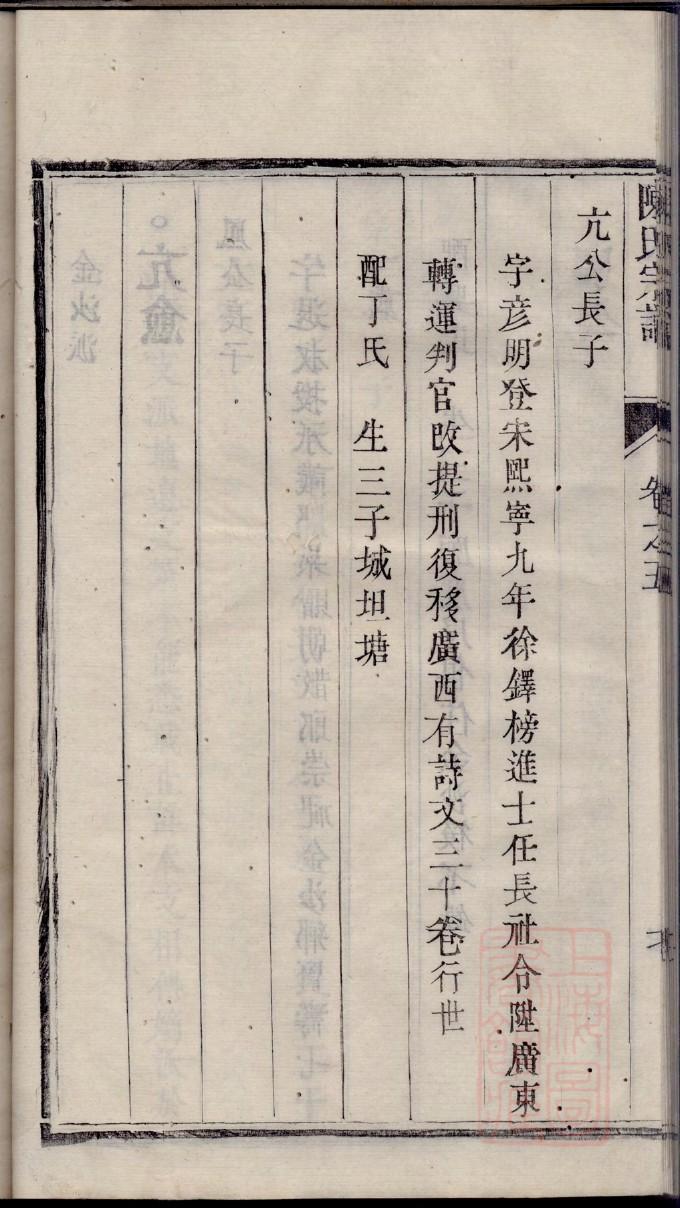 陳氏宗譜
卷之五
亢公長子
字彦明登宋熙寧九年徐鐸榜進士任長社令陞廣東
轉運判官改提刑復移廣西有詩文三十卷行世
配丁氏　生三子城坦塘